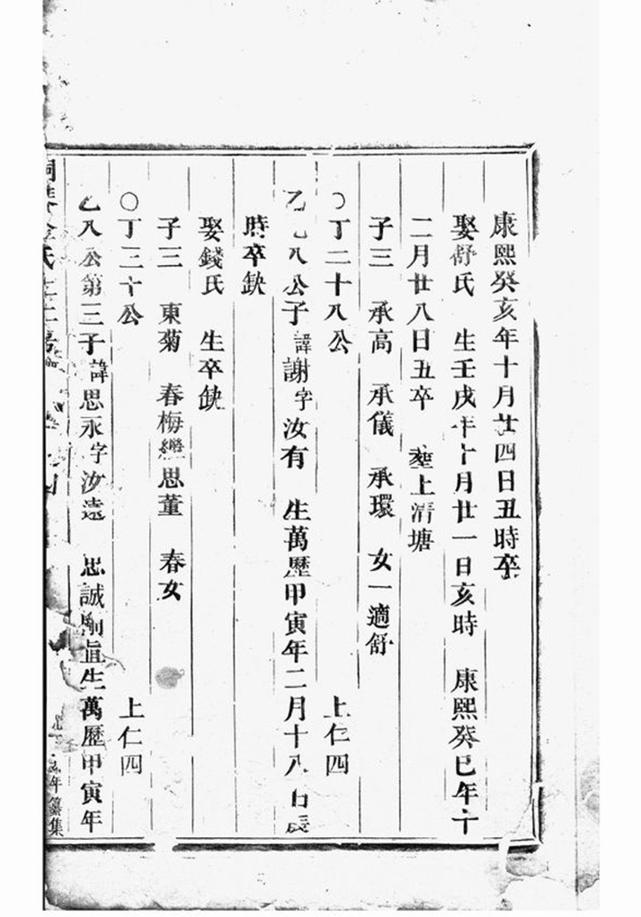 康熙癸亥年十月廿四日丑時卒
娶舒氏 生壬戌年十月廿一日亥時 康熙癸巳年十
二月廿八日丑卒 塟上清塘
子三 承高 承儀 承環 女一適舒
○丁二十八公 上仁四
乙七八公子諱謝字汝有 生萬歷甲寅年二月十八日辰
時卒缺
娶錢氏 生卒缺
子三 東菊 春梅繼思董 春女
○丁三十公 上仁四
乙八公第三子諱思永字汝遠 忠誠剛直生萬歷甲寅年
氏 年纂集